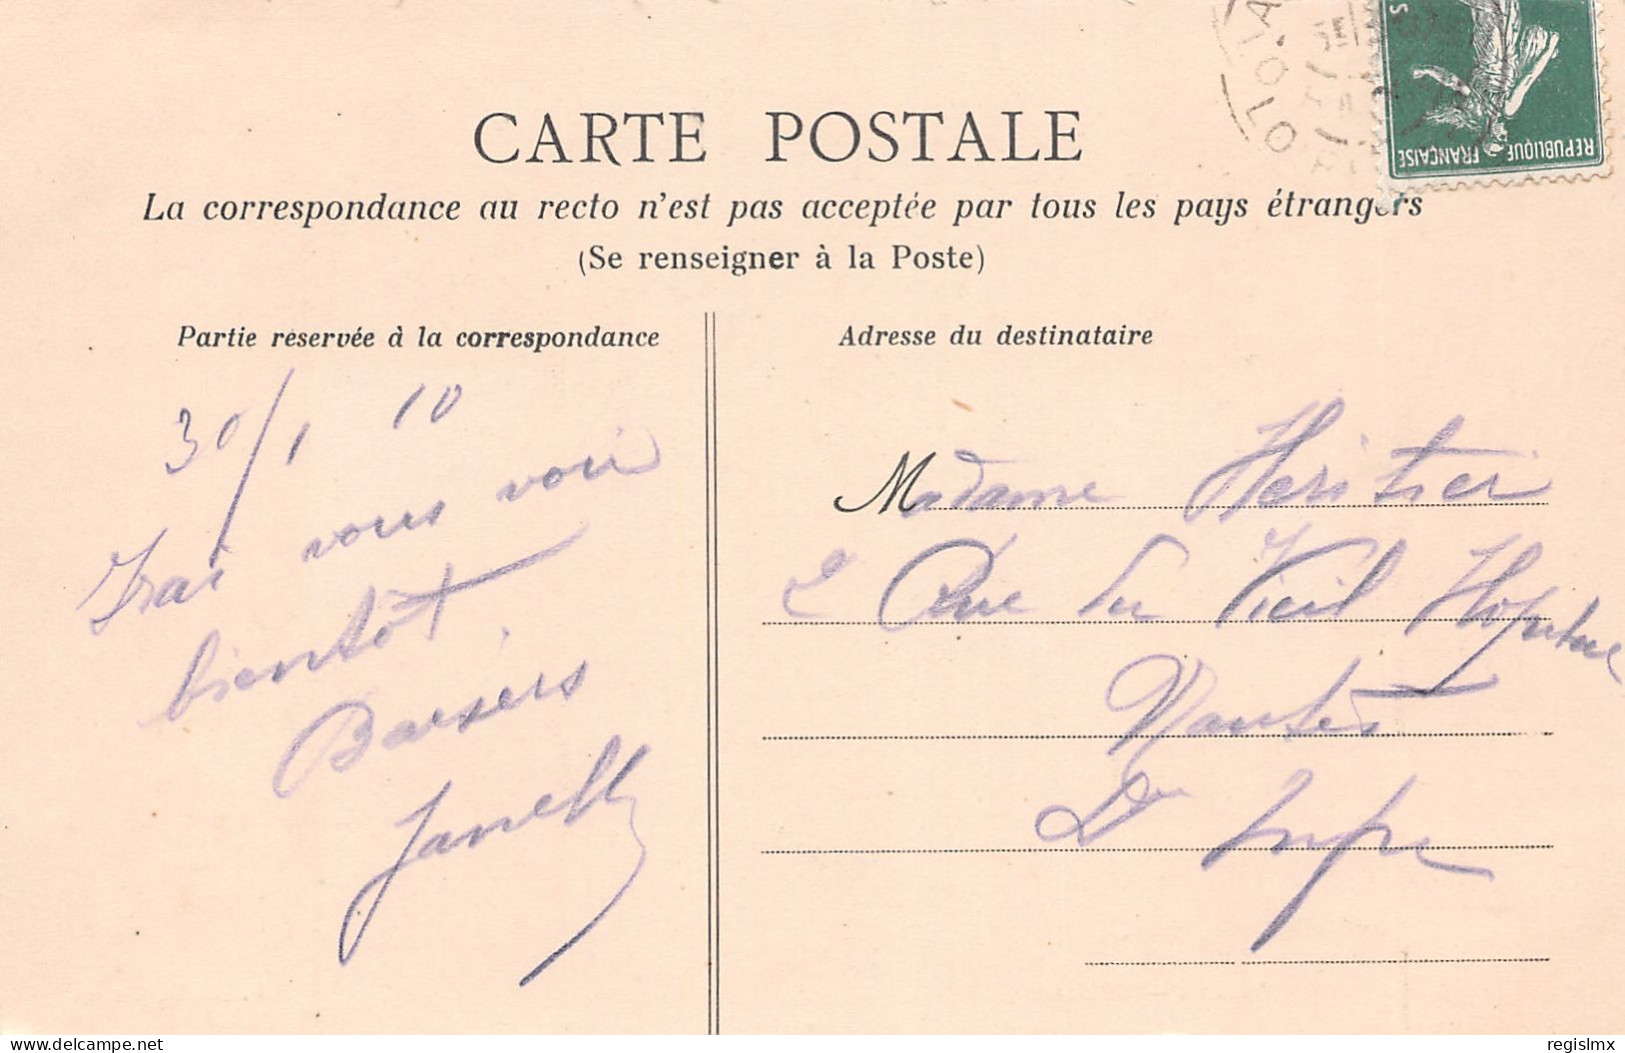 CARTE POSTALE
La correspondance au recto n'est pas acceptée par tous les pays étrangers
(Se renseigner à la Poste)
Partie réservée à la correspondance
30/1 10
Irai vous voir
bientôt
Baisers
Adresse du destinataire
Madame Heritier
2 Rue du Vieil Hopital
Nantes
Lre Infre
REPUBLIQUE FRANÇAISE
delcampe.net
regislmx